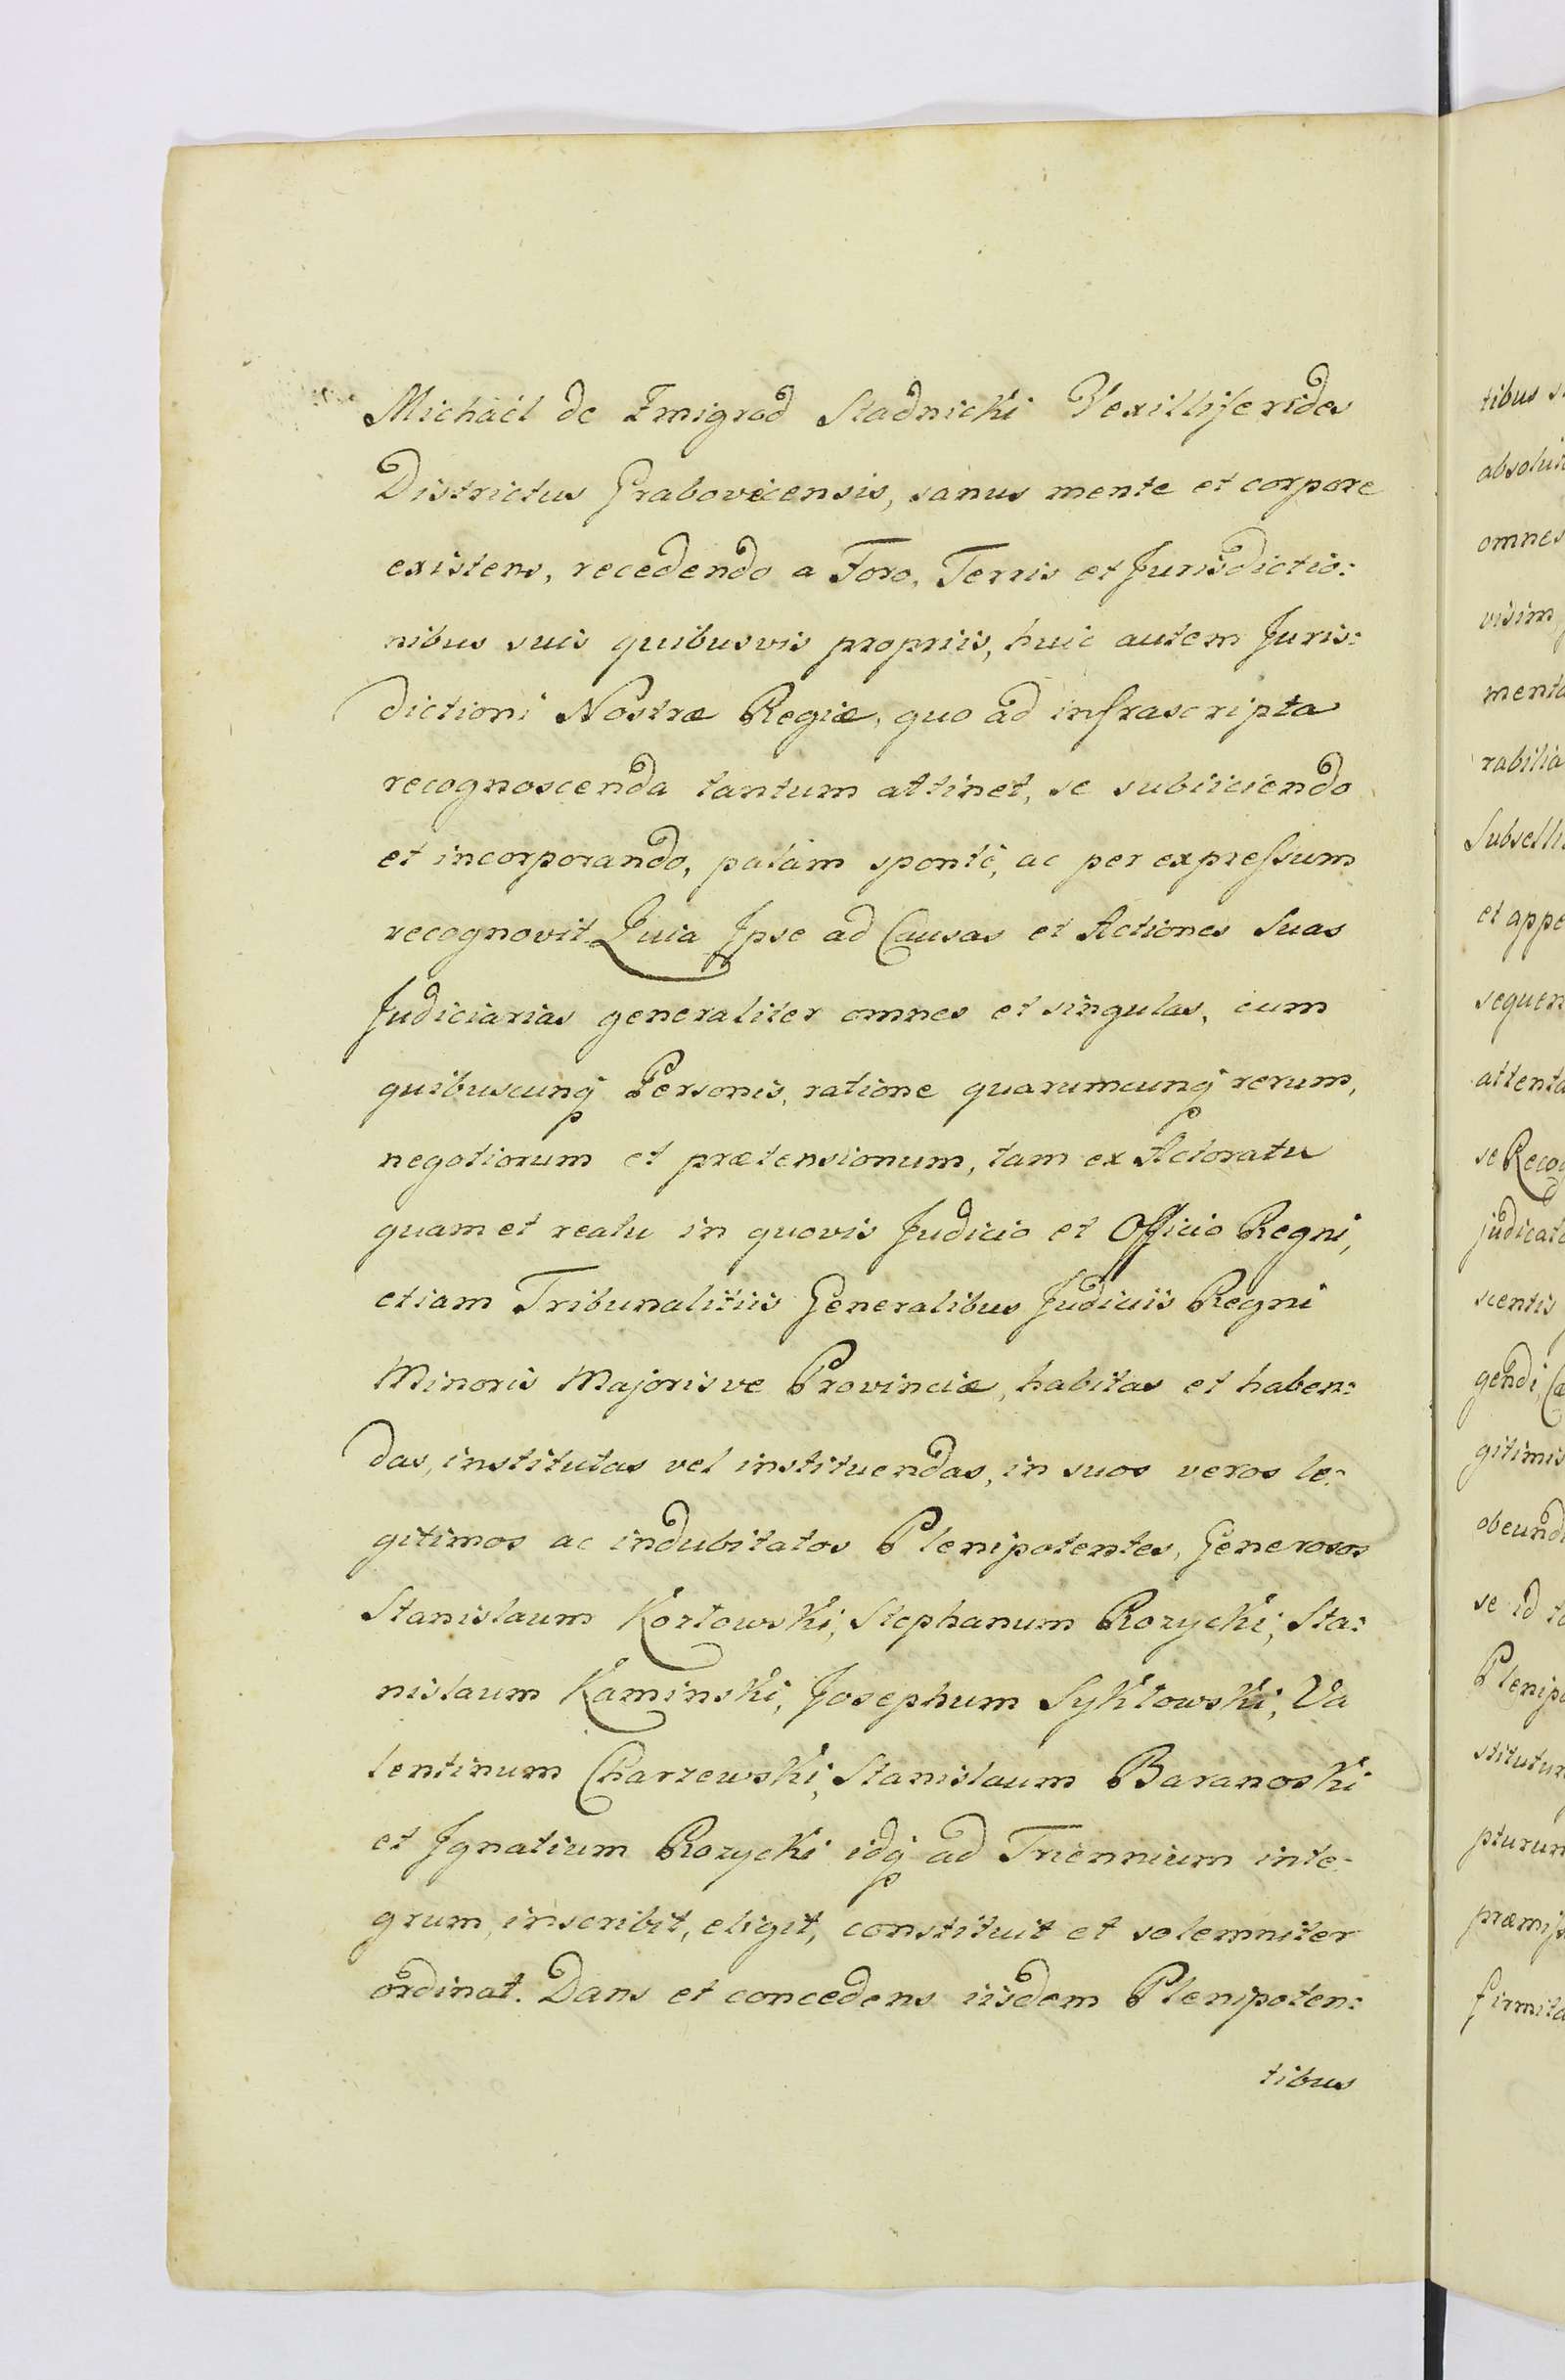 Michaël de Zmigrod Stadnicki Vexilliferides
Districtus Grabovecensis, sanus mente et corpore
existens, recedendo a Foro, Terris et Jurisdictio:
nibus suis quibusvis propriis, huic autem Juris:
dictioni Nostræ Regiæ, quo ad infrascripta
recognoscenda tantum attinet, se subiiciendo
et incorporando, palàm spontè, ac per expressum
recognovit. Quia Ipse ad Causas et Actiones Suas
Judiciarias generaliter omnes et singulas, cum
quibuscunq Personis, ratione quarumcunq rerum,
negotiorum et prætensionum, tam ex Actoratu
quam et reatu in quovis Judicio et Officio Regni,
etiam Tribunalitiis Generalibus Judiciis Regni
Minoris Majorisve Provinciæ, habitas et haben:
das, institutas vel instituendas, in suos veros le:
gitimos ac indubitatos Plenipotentes, Generosos
Stanislaum Kozlowski, Stephanum Rozycki, Sta:
nislaum Kaminski, Josephum Syklowski, Va
lentinum Charzewski, Stanislaum Baranoski
et Ignatium Rozycki idq ad Triennium inte:
grum, inscribit, eligit, constituit et solemniter
ordinat. Dans et concedens iisdem Plenipoten:
tibus
tibus
omnes
menta
rabilia
et appe
sequen
attenta
se Recog
judicato
scentis
gitimis
obeundi
se id
Plenipo